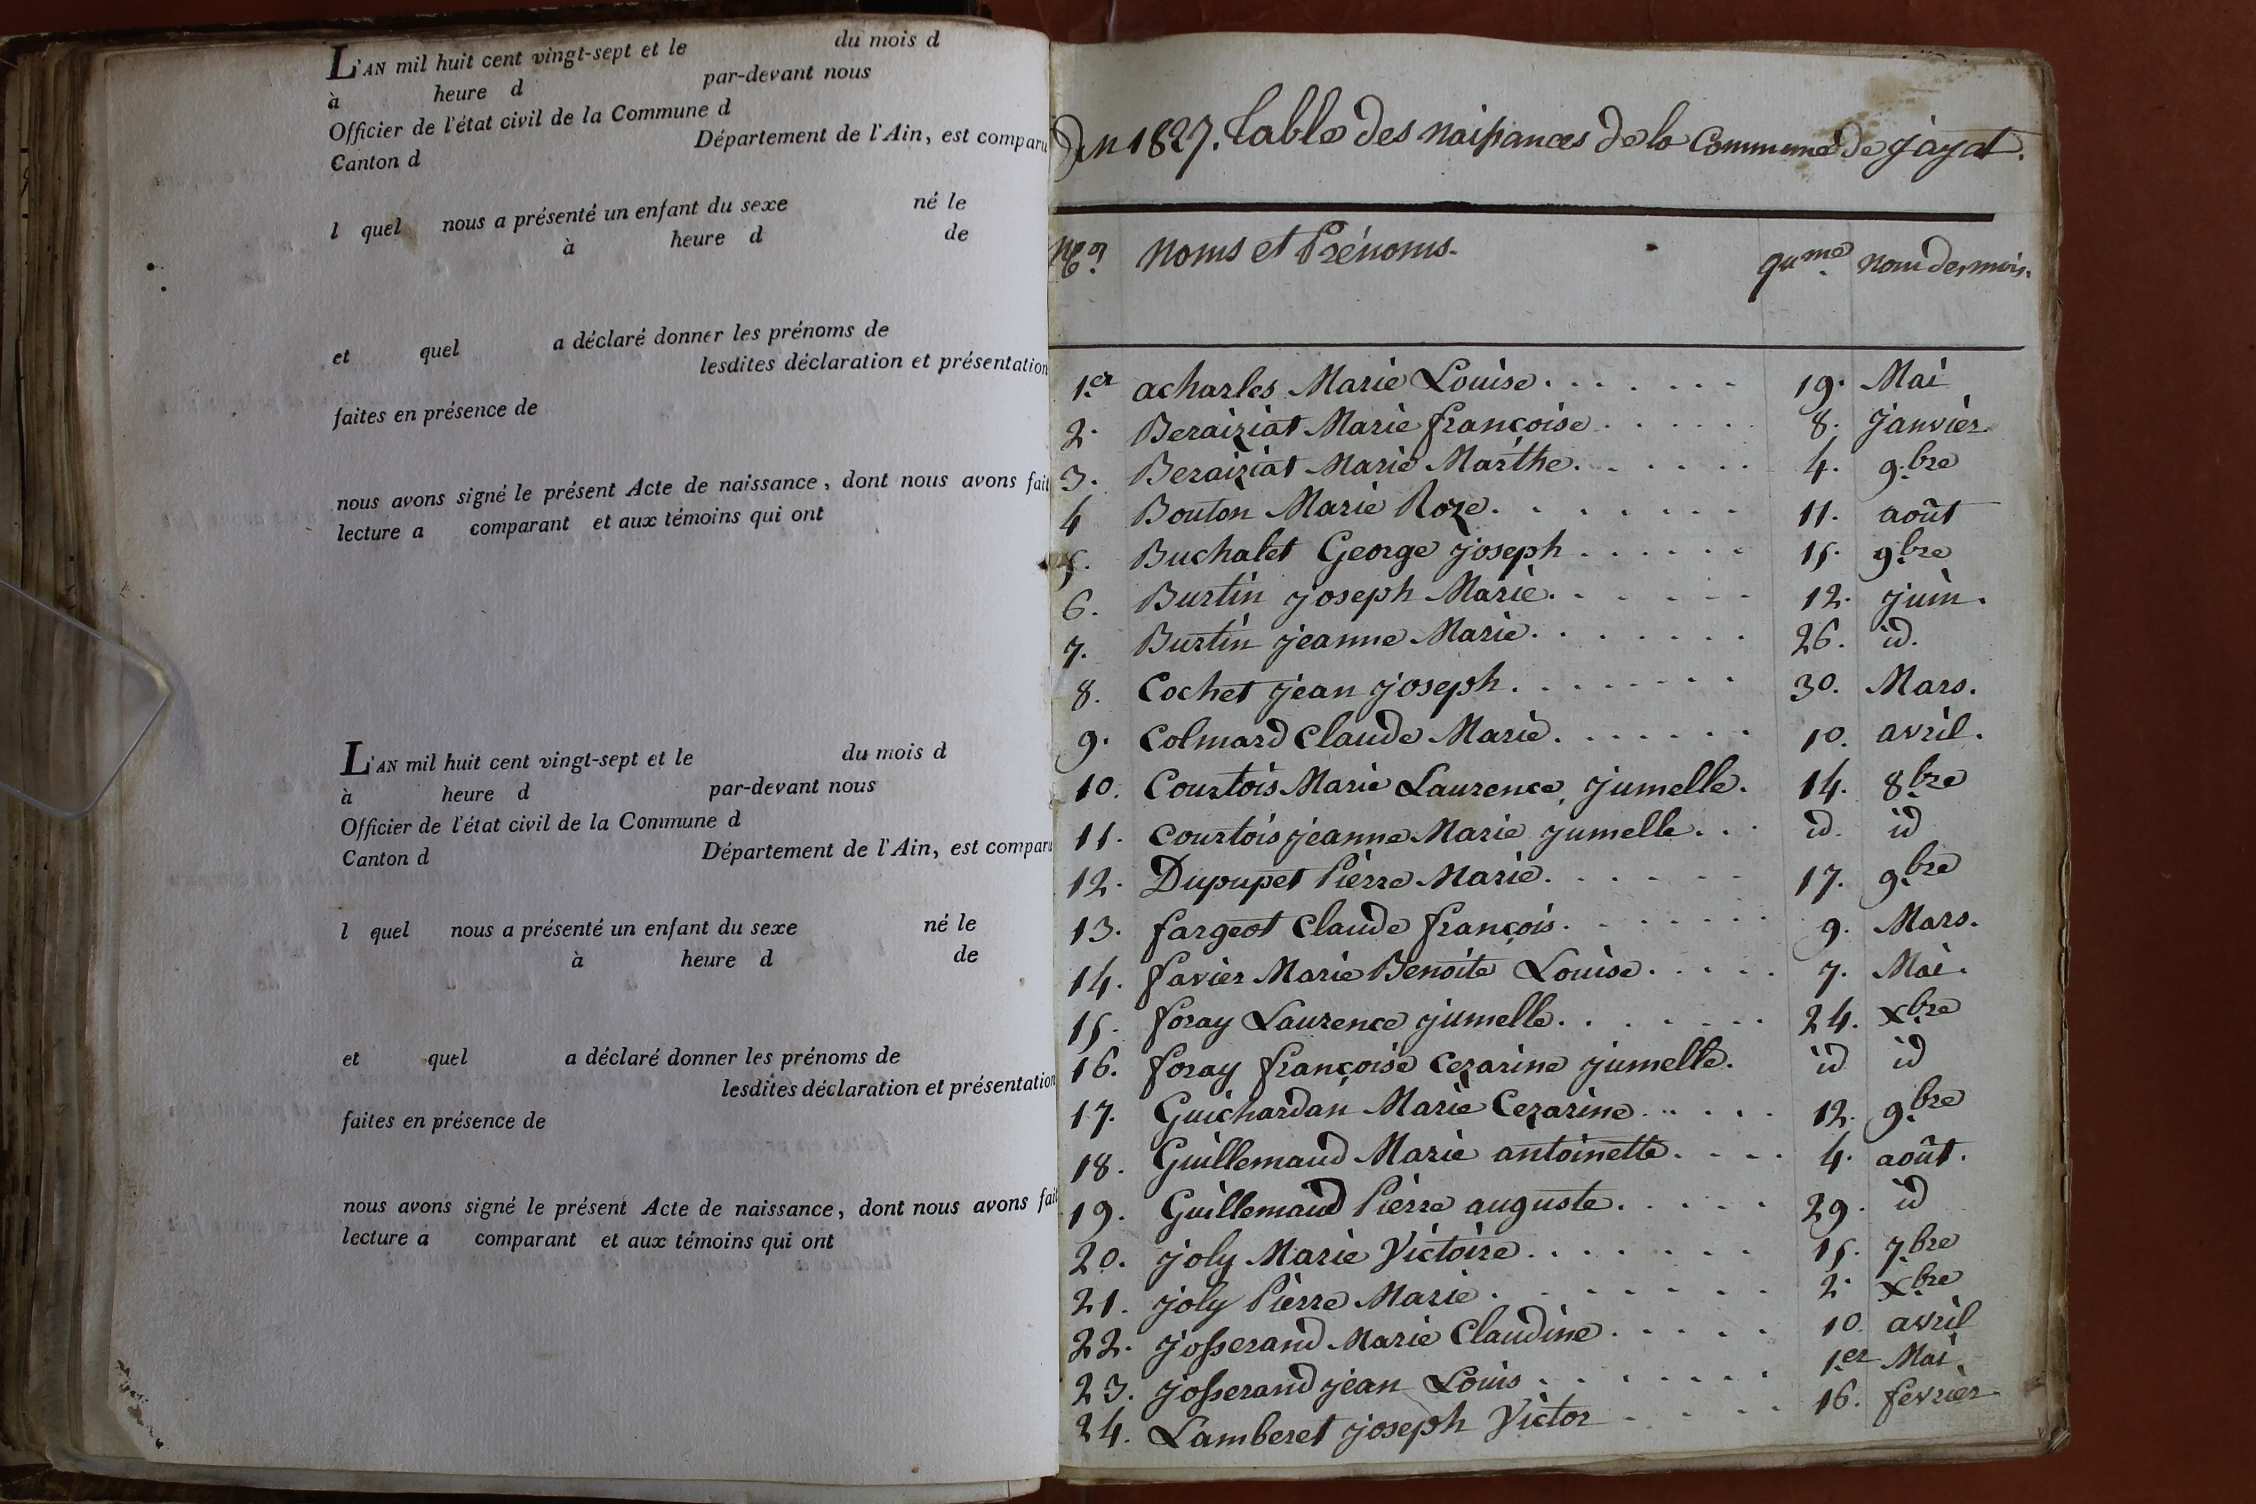 L'AN mil huit cent vingt-sept et le du mois d
à heure d par-devant nous
Officier de l'état civil de la Commune d
Canton d Département de l'Ain, est comparu
l quel nous a présenté un enfant du sexe né le
à heure d de
et quel a déclaré donner les prénoms de
lesdites déclaration et présentation
faites en présence de
nous avons signé le présent Acte de naissance, dont nous avons fait
lecture a comparant et aux témoins qui ont
L'AN mil huit cent vingt-sept et le du mois d
à heure d par-devant nous
Officier de l'état civil de la Commune d
Canton d Département de l'Ain, est comparu
l quel nous a présenté un enfant du sexe né le
à heure d de
et quel a déclaré donner les prénoms de
lesdites déclaration et présentation
faites en présence de
nous avons signé le présent Acte de naissance, dont nous avons fait
lecture a comparant et aux témoins qui ont
1827. Table des naissances de la Commune de jayat.
Nos noms et Prénoms. qume nom des mois.
1.er acharles Marie Louise. 19. Mai
2. Beraiziat Marie françoise 8. janvier
3. Beraiziat Marie Marthe. 4. 9.bre
4 Bouton Marie Roze. 11. août
5. Buchalet George joseph 15. 9.bre
6. Burtin joseph Marie. 12. juin.
7. Burtin jeanne Marie. 26. id.
8. Cochet jean joseph. 30. Mars.
9. Colmard Claude Marie. 10. avril.
10. Courtois Marie Laurence, jumelle. 14. 8.bre
11. Courtois jeanne Marie jumelle. id. id
12. Dupupet Pierre Marie. 17. 9.bre
13. fargeot Claude françois. 9. Mars.
14. favier Marie Benoite Louise. 7. Mai.
15. foray Laurence jumelle. 24. Xbre
16. foray françoise Cezarine jumelle. id id
17. Guichardan Marie Cezarine 12. 9.bre
18. Guillemaud Marie antoinette. 4. août.
19. Guillemaud Pierre auguste. 29. id
20. joly Marie Victoire. 15. 7.bre
21. joly Pierre Marie. 2. X.bre
22. josserand Marie Claudine. 10. avril
23. josserand jean Louis 1.er Mai.
24. Lamberet joseph Victor 16. fevrier.